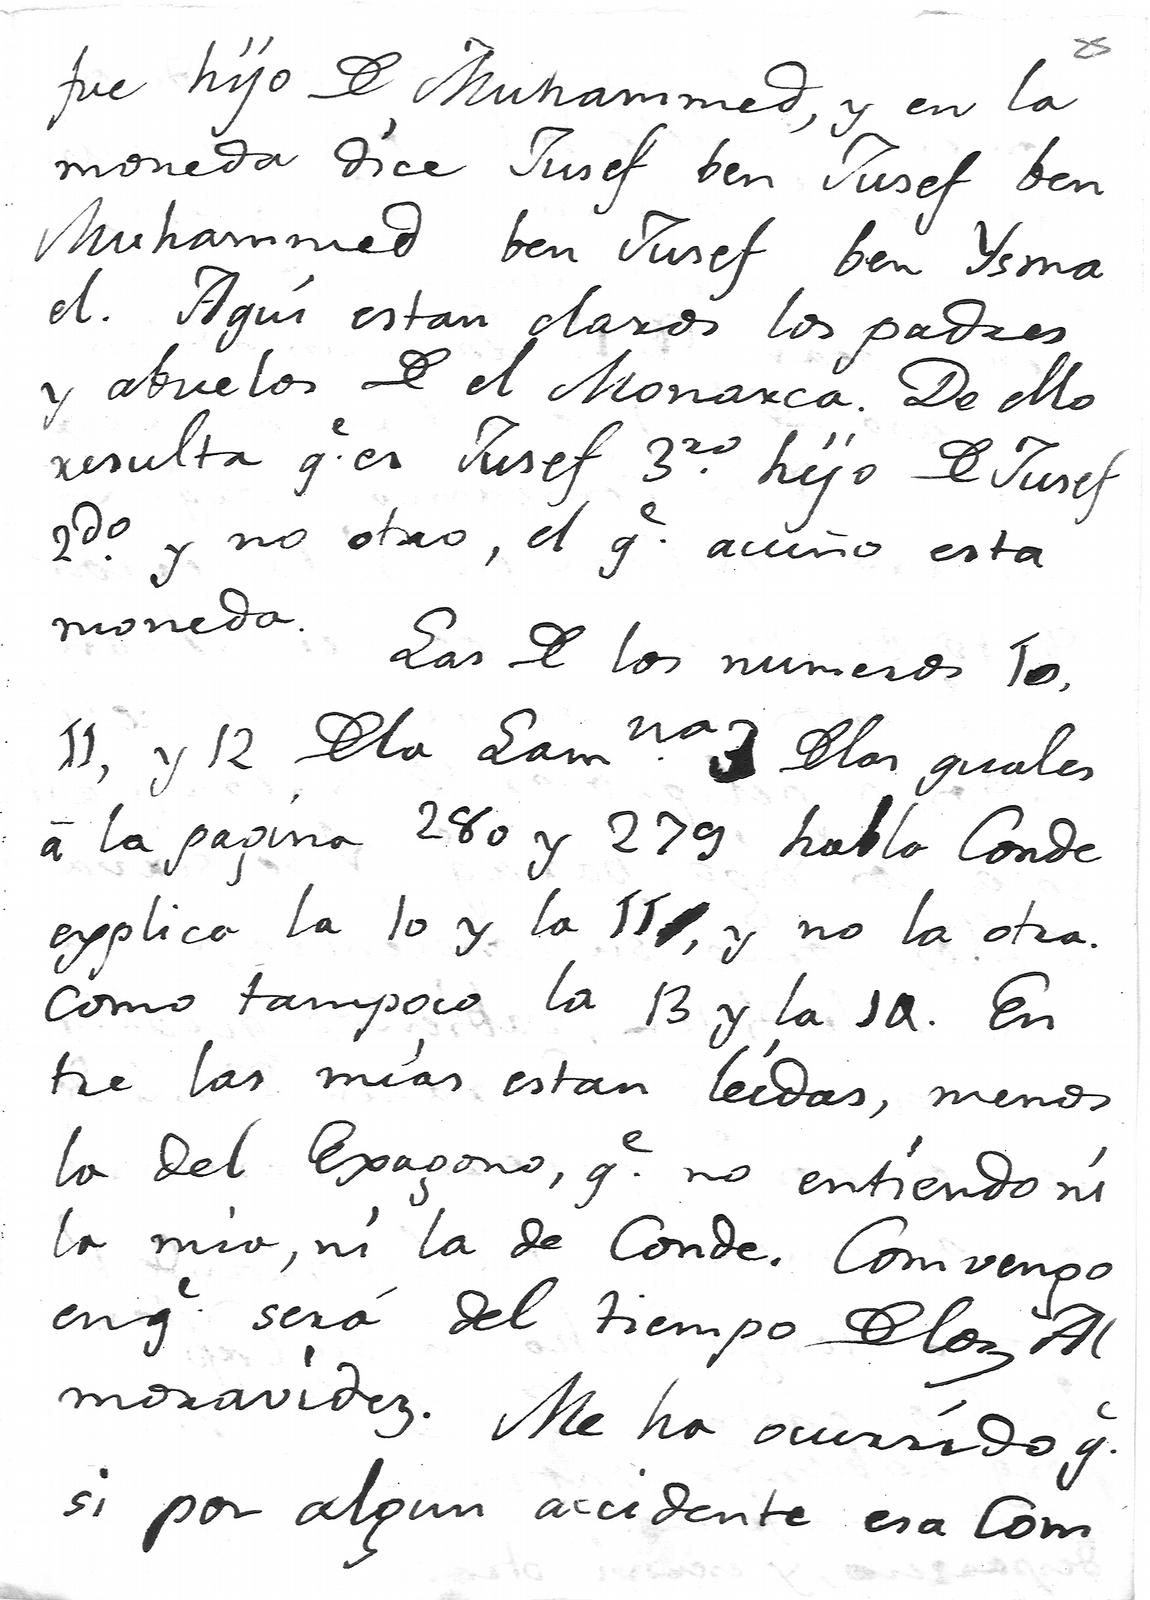 8
fue hijo de Muhammed, y en la
moneda dice Jusef ben Jusef ben
Muhammed ben Jusef ben Ysma
el. Aqui estan claros los padres
y abuelos de el Monarca. De ello
resulta qe. es Jusef 3ro. hijo de Jusef
2do. y no otro, el qe. acuño esta
moneda.
Las de los numeros 10,
11, y 12 dela Lamna. 3 delas quales
à la pagina 280 y 279 habla Conde
explica la 10 y la 11, y no la otra.
Como tampoco la 13 y la . En
tre las mias estan leidas, menos
la del Exagono, qe. no entiendo ni
la mia, ni la de Conde. Comvengo
en qe. será del tiempo delos Al
moravidez. Me ha ocurrido qe.
si por algun accidente esa Com